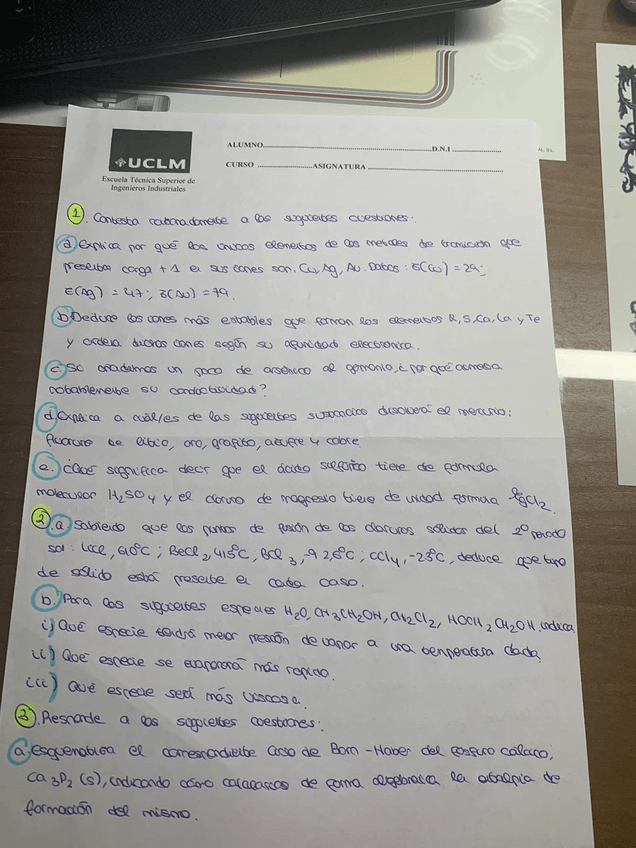 UCLM
Escuela Técnica Superior de
Ingenieros Industriales
ALUMNO.......D.N.I.......
CURSO.......ASIGNATURA.......
1. Contesta razonadamente a las siguientes cuestiones:
a) Explica por qué los únicos elementos de los metales de transición que
presentan carga +1 en sus iones son, Cu, Ag, Au. Datos: Z(Cu) = 29;
Z(Ag) = 47; Z(Au) = 79.
b) Deduce los iones más estables que forman los elementos K, S, Ca, La y Te
y ordena dichos iones según su afinidad electrónica.
c) Si añadimos un poco de arsénico al germanio, ¿por qué aumenta
notablemente su conductividad?
d) Explica a cuál/es de las siguientes sustancias disolverá el mercurio:
fluoruro de litio, oro, grafito, azufre y cobre.
e. ¿Qué significa decir que el ácido sulfúrico tiene de fórmula
molecular H2SO4 y el cloruro de magnesio tiene de unidad fórmula MgCl2.
2. a) Sabiendo que los puntos de fusión de los cloruros sólidos del 2º periodo
son: LiCl, 610ºC; BeCl2, 415ºC, BCl3, -92,6ºC; CCl4, -23ºC, deduce que tipo
de sólido está presente en cada caso.
b. Para las siguientes especies H2O, CH3CH2OH, CH2Cl2, HOCH2CH2OH, indica:
i) Qué especie tendrá menor presión de vapor a una temperatura dada.
ii) Qué especie se evaporará más rápido.
iii) Qué especie será más viscosa.
3. Responde a las siguientes cuestiones:
a. Esquematiza el correspondiente ciclo de Born-Haber del fosfuro cálcico,
Ca3P2 (s), indicando cómo calcularías de forma algebraica la entalpía de
formación del mismo.